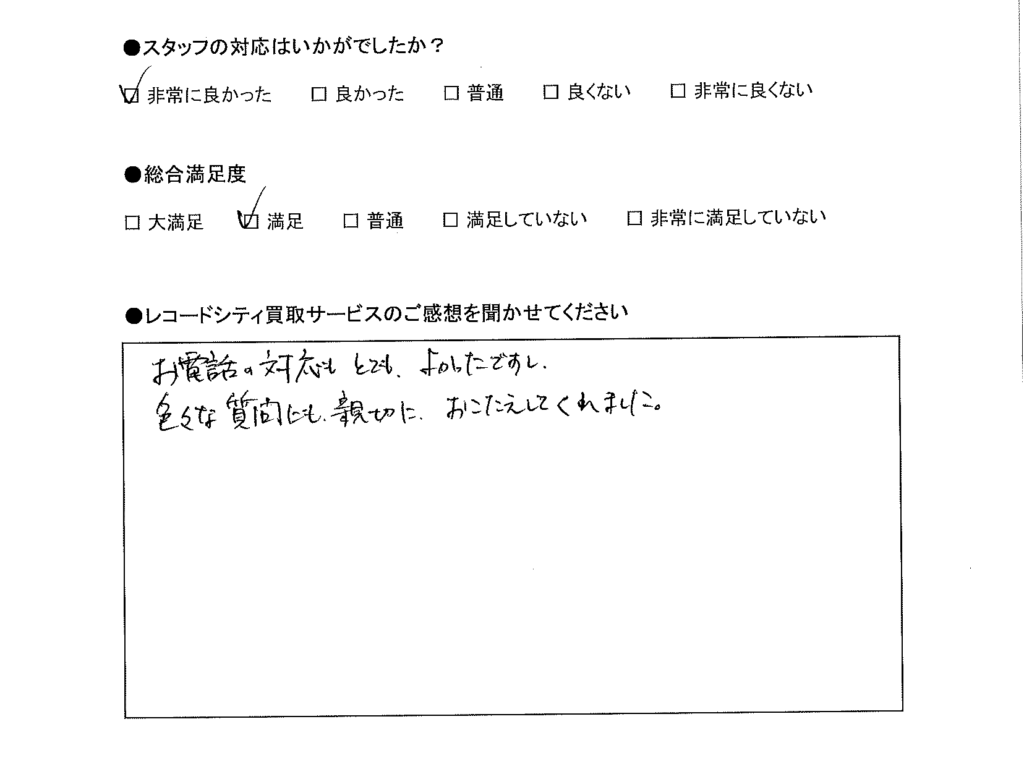 ●スタッフの対応はいかがでしたか？
☑ 非常に良かった □ 良かった □ 普通 □ 良くない □ 非常に良くない
●総合満足度
□ 大満足 ☑ 満足 □ 普通 □ 満足していない □ 非常に満足していない
●レコードシティ買取サービスのご感想を聞かせてください
お電話の対応もとても、よかったですし、
色々な質問にも、親切に、おこたえしてくれました。